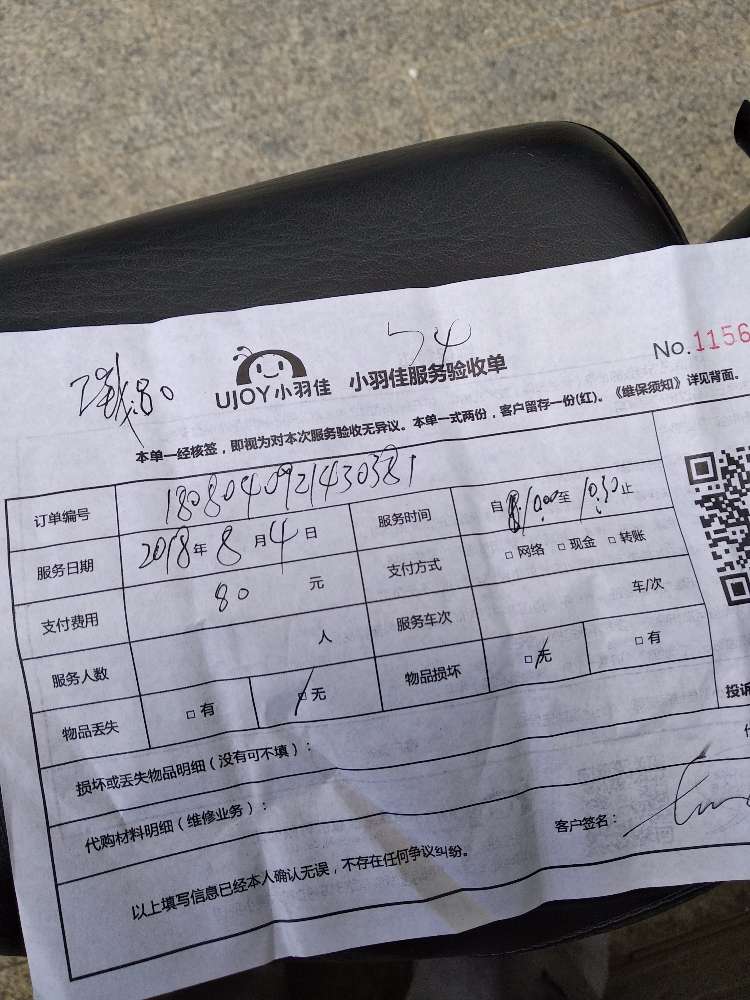 54
No.1156
UJOY小羽佳 小羽佳服务验收单
:80
本单一经核签，即视为对本次服务验收无异议。本单一式两份，客户留存一份(红)。《维保须知》详见背面。
订单编号 1808040921430381
服务日期 2018年8月4日 服务时间 自 10:00至 10:30止
支付费用 80 元 支付方式 □网络 □现金 □转账
服务人数 人 服务车次 车/次
物品丢失 □有 □无 物品损坏 □无 □有
投诉
损坏或丢失物品明细（没有可不填）：
代购材料明细（维修业务）：
客户签名：
以上填写信息已经本人确认无误，不存在任何争议纠纷。